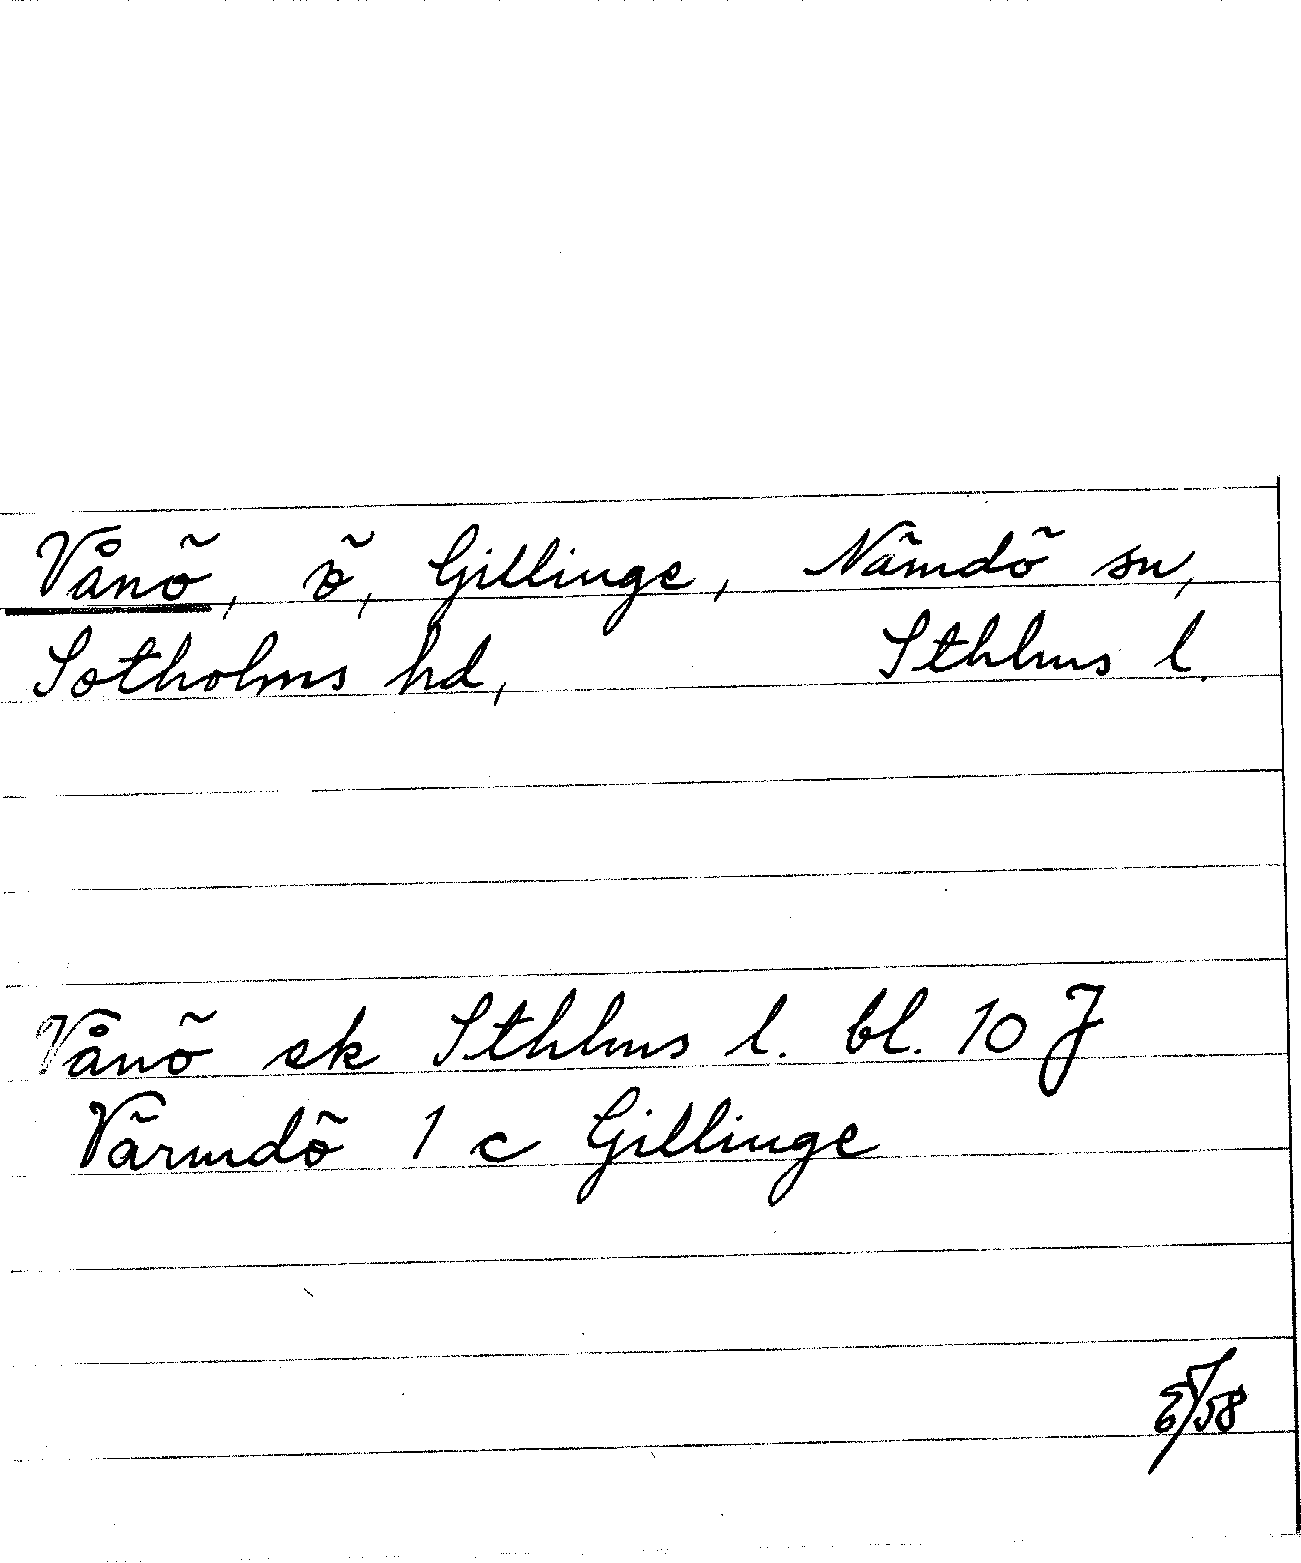 Vånö, ö, Gillinge, Nämdö sn,
Sotholms hd, Sthlms l.
Vånö ek Sthlms l. bl. 10 J
Värmdö 1 c Gillinge